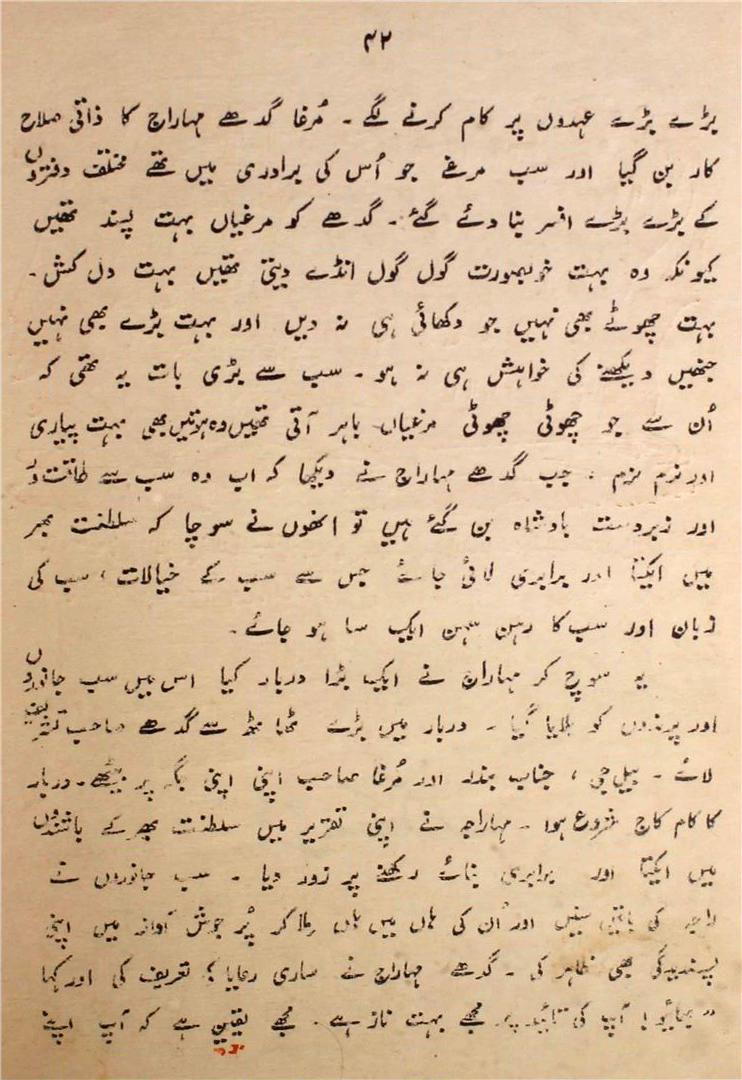 ۴۲
بڑے بڑے عہدوں پر کام کرنے لگے ۔ مُرغا گدھے مہاراج کا ذاتی صلاح
کار بن گیا اور سب مرغے جو اُس کی برادری میں تھے مختلف دفتروں
کے بڑے بڑے افسر بنا دئے گئے ۔ گدھے کو مرغیاں بہت پسند تھیں
کیونکہ وہ بہت خوبصورت گول گول انڈے دیتی تھیں بہت دل کش ۔
بہت چھوٹے بھی نہیں جو دکھائی ہی نہ دیں اور بہت بڑے بھی نہیں
جنھیں دیکھنے کی خواہش ہی نہ ہو ۔ سب سے بڑی بات یہ تھی کہ
اُن سے جو چھوٹی چھوٹی مرغیاں باہر آتی تھیں وہ ہوتیں بھی بہت پیاری
اور نرم نرم ۔ جب گدھے مہاراج نے دیکھا کہ اب وہ سب سے طاقت ور
اور زبردست بادشاہ بن گئے ہیں تو انھوں نے سوچا کہ سلطنت بھر
میں ایکتا اور برابری لائی جائے جس سے سب کے خیالات ، سب کی
زبان اور سب کا رہن سہن ایک سا ہو جائے ۔
یہ سوچ کر مہاراج نے ایک بڑا دربار کیا اس میں سب جانوروں
اور پرندوں کو بلایا گیا ۔ دربار میں بڑے ٹھاٹھ سے گدھے صاحب تشریف
لائے ۔ بیل جی ، جناب بندر اور مُرغا صاحب اپنی اپنی جگہ پر بیٹھے ۔ دربار
کا کام کاج شروع ہوا ۔ مہاراجہ نے اپنی تقریر میں سلطنت بھر کے باشندوں
میں ایکتا اور برابری بنائے رکھنے پر زور دیا ۔ سب جانوروں نے
راجہ کی باتیں سنیں اور اُن کی ہاں میں ہاں ملا کر پُر جوش آواز میں اپنی
پسندیدگی بھی ظاہر کی ۔ گدھے مہاراج نے ساری رعایا کی تعریف کی اور کہا
" بھائیو ! آپ کی تائید پر مجھے بہت ناز ہے ۔ مجھے یقین ہے کہ آپ اپنے